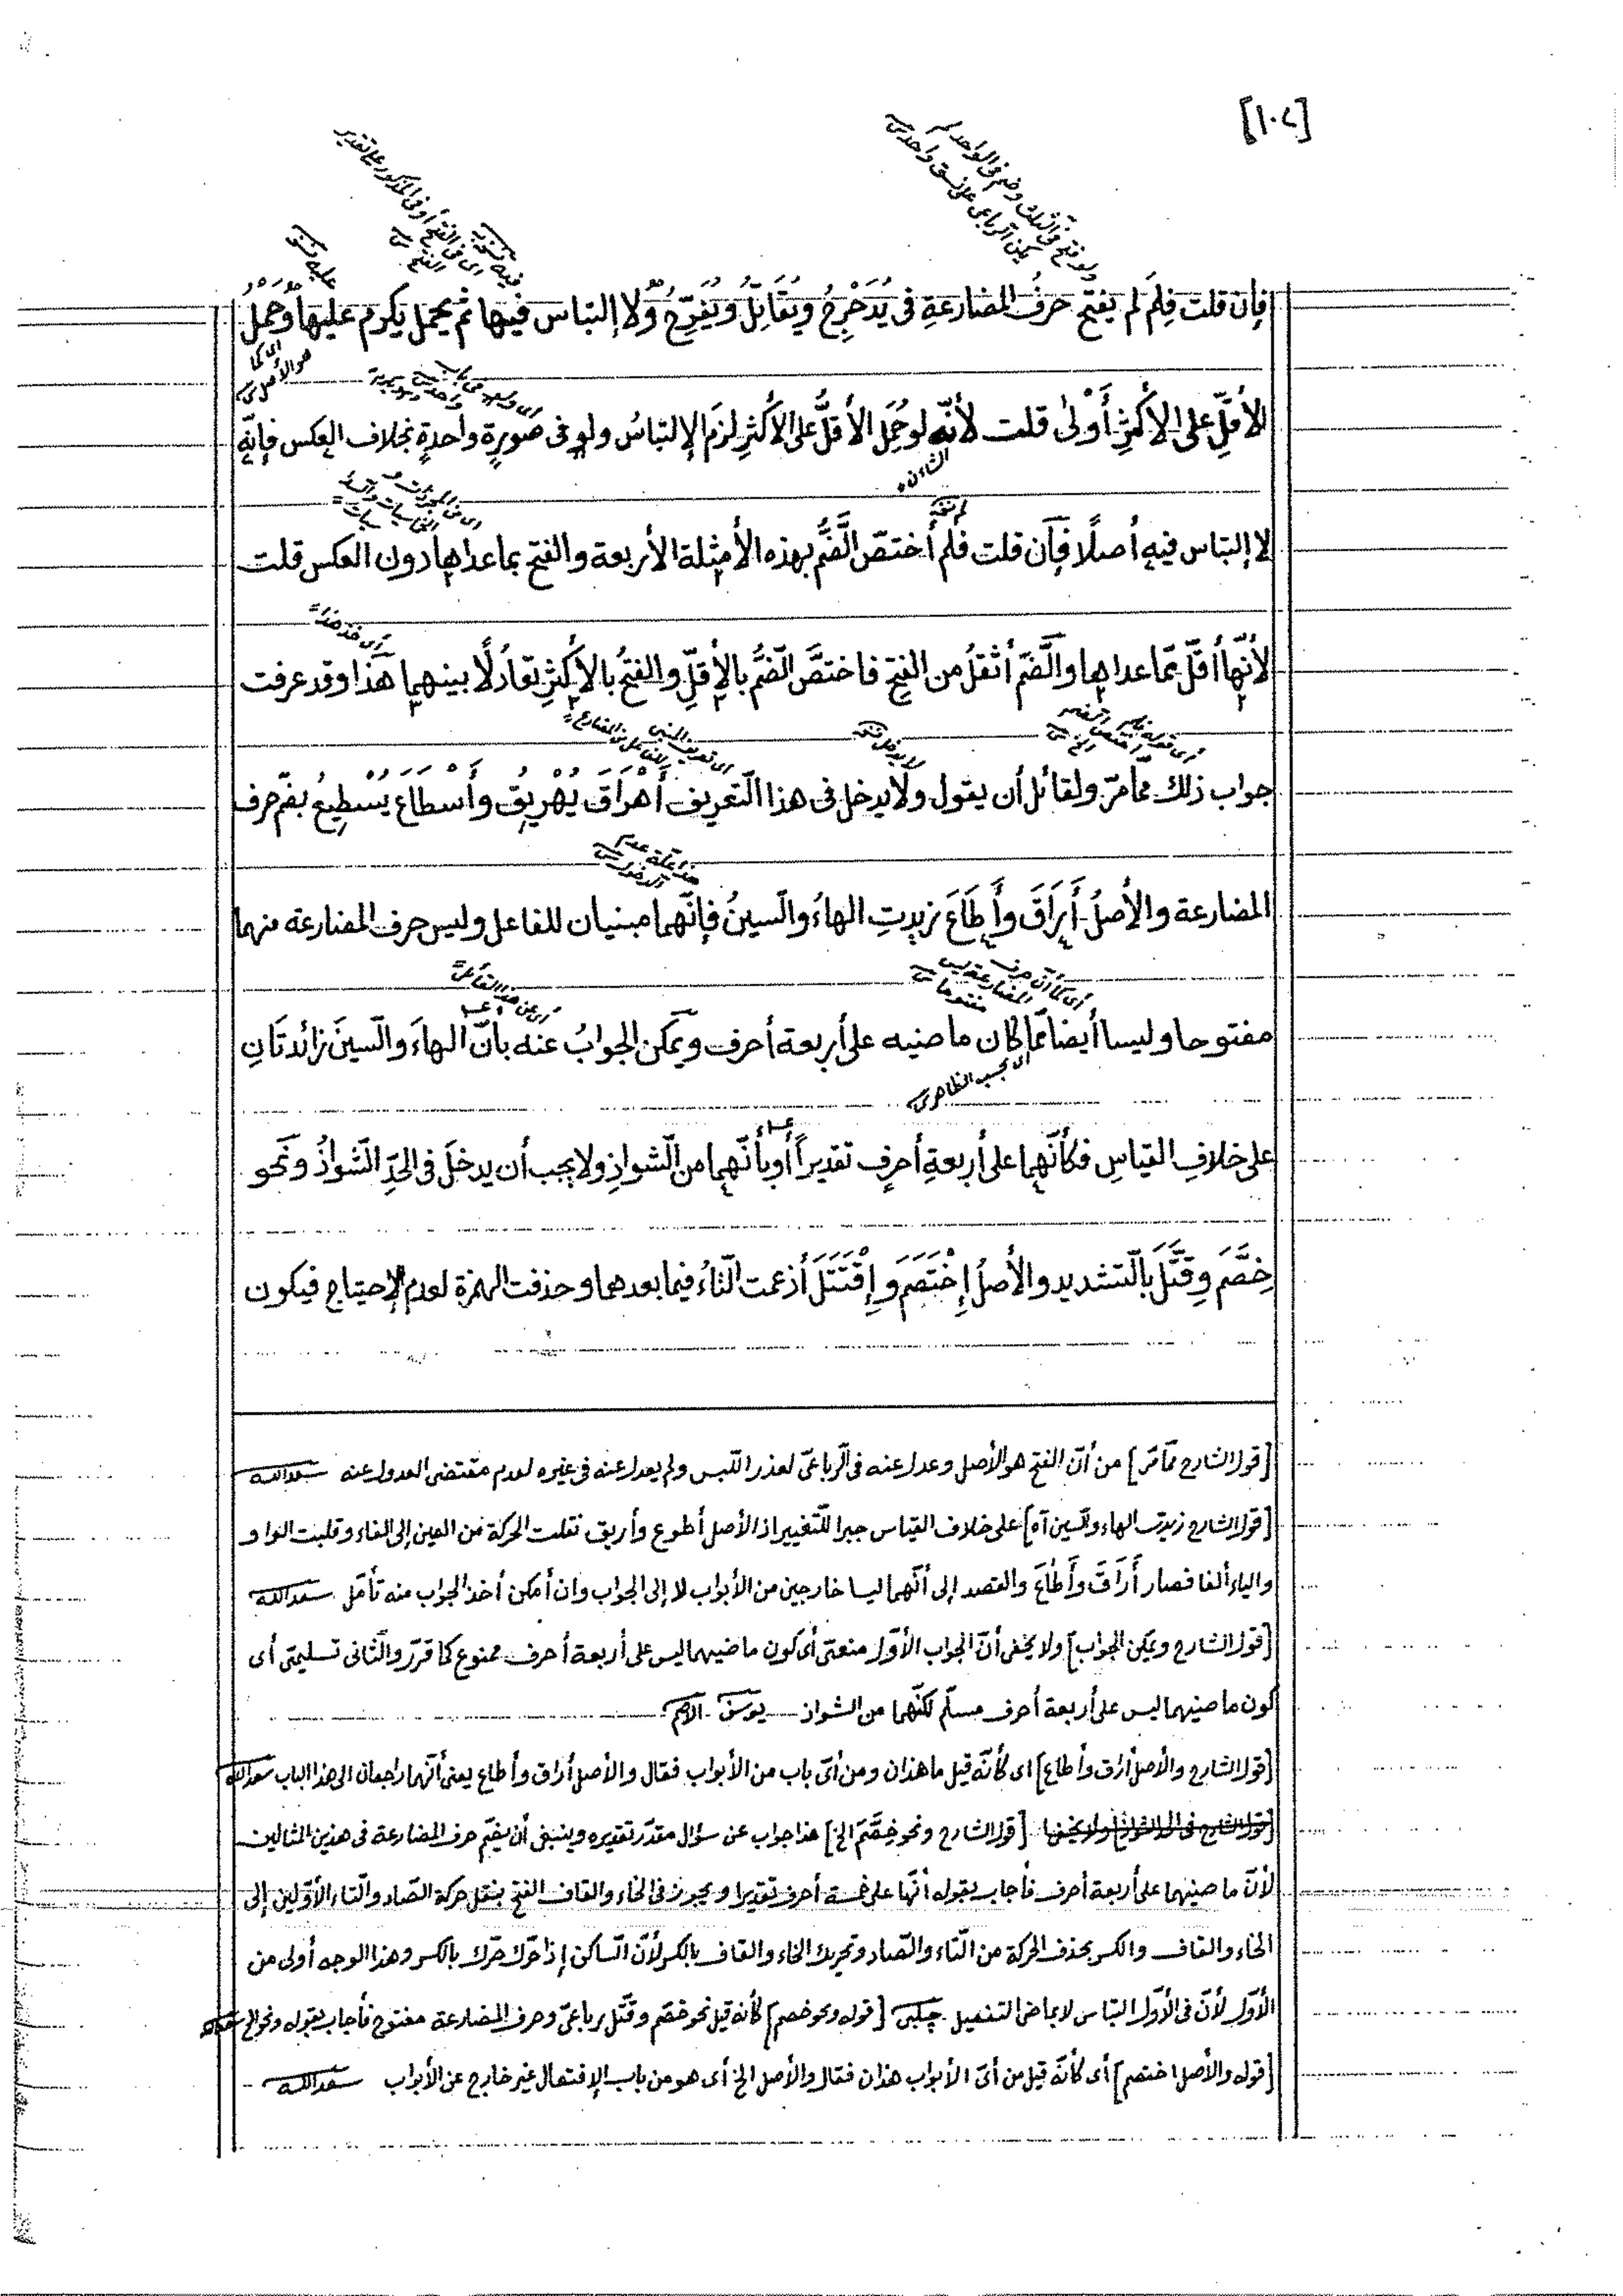 [١٠٧]
فإن قلت فلِمَ لم يفتح حرفُ المضارعةِ فى يُدَحْرِجُ ويُقَاتِلُ ويُفَرِّحُ ولا إلتباس فيها ثم يحمل يكرم عليها وحَمْلُ
الأقلِّ على الأكثرِ أَوْلىٰ قلت لأنّه لو حُمِلَ الأقلُّ على الأكثرِ لزمَ الإلتباسُ ولو فى صورةٍ واحدةٍ بخلاف العكس فإنّه
لا إلتباس فيه أصلًا فإن قلت فلم أختصّ الضَّمُّ بهذه الأمثلة الأربعة والفتح بما عداها دون العكس قلت
لأنّها أقلّ ممّا عداها والضّمّ أثقلُ من الفتح فاختصَّ الضّمُّ بالأقلِّ والفتحُ بالأكثرِ تعادلًا بينهما هذا وقد عرفت
جواب ذلك ممّا مرّ ولقائل أن يقول ولا يدخل فى هذا التّعريف أَهْرَاقَ يُهْرِيقُ وأَسْطَاعَ يُسْطِيعُ بضمّ حرف
المضارعة والأصلُ أَرَاقَ وأَطَاعَ زيدتِ الهاءُ والسّينُ فإنّهما مبنيان للفاعل وليس حرف المضارعة منهما
مفتوحا وليسا أيضا ممّا كان ماضيه على أربعة أحرف ويمكن الجوابُ عنه بأنّ الهاءَ والسّينَ زائدتَانِ
أى بحسب الظاهر
على خلافِ القياسِ فكأنّهما على أربعةِ أحرفٍ تقديراً أو بأنّهما من الشّواذِ ولا يجب أن يدخلَ فى الحدِّ الشّواذُ ونحو
خِصَّمَ وقِتَّلَ بالتّشديد والأصلُ إِخْتَصَمَ وإِقْتَتَلَ أدغمت التّاءُ فيما بعدهما وحذفت الهمزة لعدم الإحتياج فيكون
[قول الشارح ممّا مرّ] من أنّ الفتح هو الأصل وعدل عنه فى الرّباعىّ لعذر اللّبس ولم يعدل عنه فى غيره لعدم مقتضى العدول عنه سعد الله
[قول الشارح زيدت الهاء والسين آه] على خلاف القياس جبرا للتّغيير اذ الأصل أطوع وأريق نقلت الحركة من العين إلى الفاء وقلبت الواو
والياء ألفا فصار أَرَاقَ وأَطَاعَ والقصد إلى أنّهما ليسا خارجين من الأبواب لا إلى الجواب وان أمكن أخذ الجواب منه تأمّل سعد الله
[قول الشارح ويمكن الجواب] ولا يخفى أنّ الجواب الأوّل منعىّ أى كون ماضيهما ليس على أربعة أحرف ممنوع كما قرّر والثّانى تسليمىّ أى
كون ماضيهما ليس على أربعة أحرف مسلّم لكنّهما من الشواذ يوسف الاصم
[قول الشارح والأصل أراق وأطاع] اى كأنّه قيل ما هذان ومن أىّ باب من الأبواب فقال والأصل أراق وأطاع يعنى أنّهما راجعان الى هذا الباب سعد الله
[قول الشارح ونحو خِصَّمَ الخ] هذا جواب عن سؤال مقدّر تقديره وينبغى أن يضمّ حرف المضارعة فى هذين المثالين
لأنّ ماضيهما على أربعة أحرف فأجاب بقوله أنّها على خمسة أحرف تقديرا ويجوز فى الخاء والقاف الفتح بنقل حركة الصّاد والتّاء الأوّلين إلى
الخاء والقاف والكسر بحذف الحركة من التّاء والصّاد وتحريك الخاء والقاف بالكسر لأنّ السّاكن إذا حرّك حرّك بالكسر وهذا الوجه أولى من
الأوّل لأنّ فى الأوّل التباس لا بماضى التفعيل چلبى [قوله ونحو خصم] كأنه قيل نحو خصّم وقتّل رباعىّ وحرف المضارعة مفتوح فأجاب بقوله ونحو الخ سعد الله
[قوله والأصل اختصم] أى كأنّه قيل من أىّ الأبواب هذان فقال والأصل الخ أى هو من باب الإفتعال غير خارج عن الأبواب سعد الله